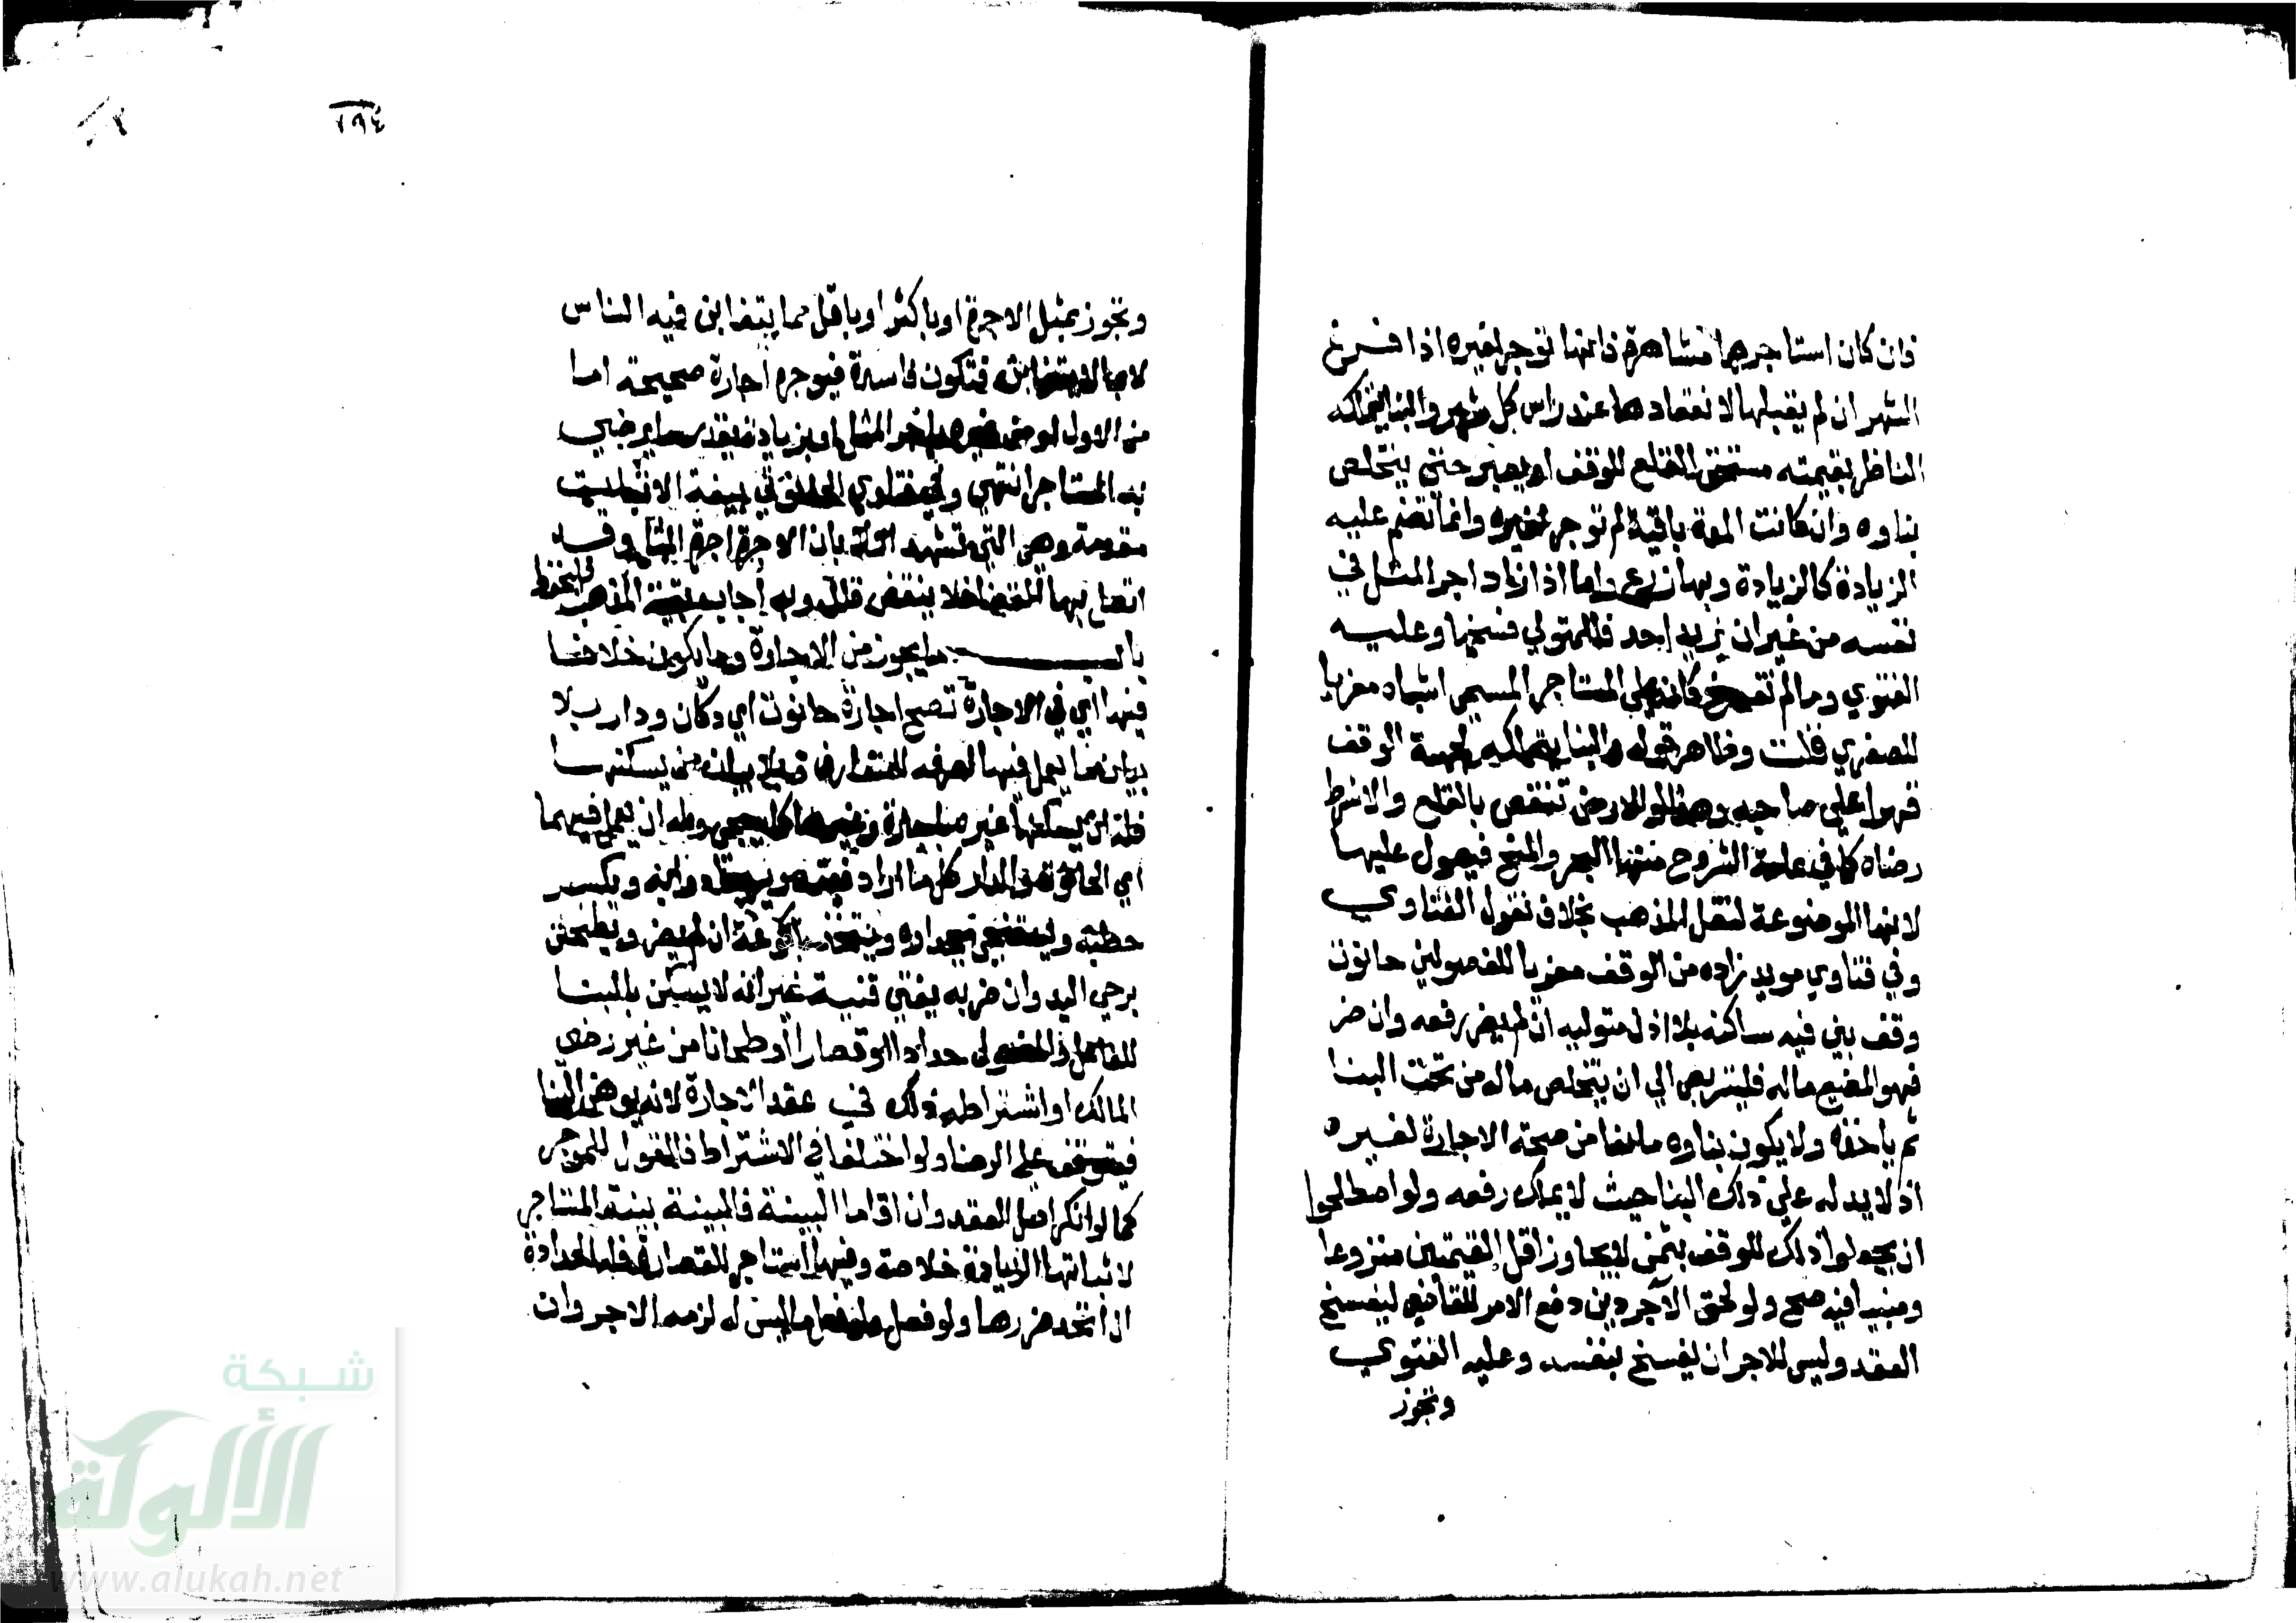 فان كان استاجرها مشاهرة فانها توجر لغيره اذا فرغ
الشهر ان لم يقبلها لانعقادها عند راس كل شهر والبنا يتملكه
الناظر بقيمته مستحق القلع للوقف او يصبر حتى يتخلص
بناوه وان كانت المدة باقية لم توجر لغيره وانما تضم عليه
الزيادة كالزيادة وبها زرع واما اذا زاد اجر المثل في
نفسه من غير ان يزيد احد فللمتولي فسخها وعليه
الفتوي وما لم تفسخ كان على المستاجر المسمى اشباه معزيا
للصغري قلت وظاهر قوله والبنا يتملكه لجهة الوقف
قهرا علي صاحبه وهذا لو الارض تنقص بالقلع والا شرط
رضاه كما في عامة الشروح منها البحر والمنح فيعول عليها
لانها الموضوعة لنقل المذهب بخلاف نقول الفتاوي
وفي فتاوي مويد زاده من الوقف معزيا للفصولين حانوت
وقف بني فيه ساكنه بلا اذن متوليه ان لم يضر رفعه وان ضر
فهو المضيع ماله فليتربص الي ان يتخلص ماله من تحت البنا
ثم ياخذه ولا يكون بناوه مانعا من صحة الاجارة لغيره
اذ لا يد له علي ذلك البنا حيث لا يملك رفعه ولو اصطلحوا
ان يجعلوا ذلك للوقف بثمن لا يجاوز اقل القيمتين منزوعا
ومبنيا فيه صح ولو لحق الآجر دين دفع الامر للقاضي ليفسخ
العقد وليس للاجر ان يفسخ بنفسه وعليه الفتوي
وتجوز
٢٩٤
وتجوز بمثل الاجرة او باكثر او باقل مما يتغابن فيه الناس
لا بما لا يتغابن فتكون فاسدة فيوجره اجارة صحيحة اما
من الاول او من غيره باجر المثل او بزيادة بقدر ما يرضي
به المستاجر انتهي وفي فتاوي الحانوتي بينة الاثبات
مقدمة وهي التي تشهد بان الاجرة اجرة المثل وقد
اتصل بها القضا فلا ينقض قلت وبه اجاب بقية المذهب فليحفظ
باب ما يجوز من الاجارة وما يكون خلافا
فيها اي في الاجارة تصح اجارة حانوت اي دكان ودار بلا
بيان ما يعمل فيها لصرفه للمتعارف وبلا بيان من يسكنها
فله ان يسكنها غيره باجارة وغيرها كما سيجي وله ان يعمل فيهما
اي الحانوت والدار كل ما اراد فيتد ويربط دوابه ويكسر
حطبه ويستنجي بجداره ويتخذ بالوعة ان لم يضر ويطحن
برحي اليد وان ضر به يفتي قنية غير انه لا يسكن بالبنا
للفاعل او المفعول حدادا او قصارا او طحانا من غير رضي
المالك او اشتراطه ذلك في عقد الاجارة لانه يوهن البنا
فيتوقف علي الرضا ولو اختلفا في الاشتراط فالقول للموجر
كما لو انكر اصل العقد وان اقاما البينة فالبينة بينة المستاجر
لاثباتها الزيادة خلاصة وفيها استاجر للقصارة فله الحدادة
اذا اتحد ضررها ولو فعل ما ليس له لزمه الاجر وان
شبكة
الألوكة
www.alukah.net